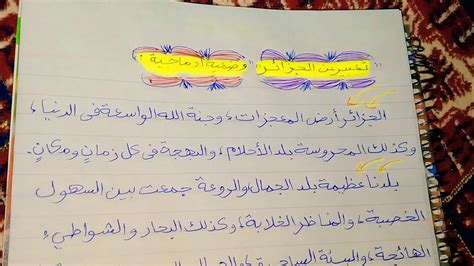 "تعبير عن الجزائر" "وضعية ادماجية"
الجزائر أرض المعجزات، وجنة الله الواسعة في الدنيا،
وكذلك المحروسة بلد الأحلام، والبهجة في كل زمانٍ ومكانٍ.
بلدنا عظيمة بلد الجمال والروعة جمعت بين السهول
الخصبة، والمناظر الخلابة، وكذلك البحار والشواطئ،
الهائجة، والبيئة الساحرة، والجبال